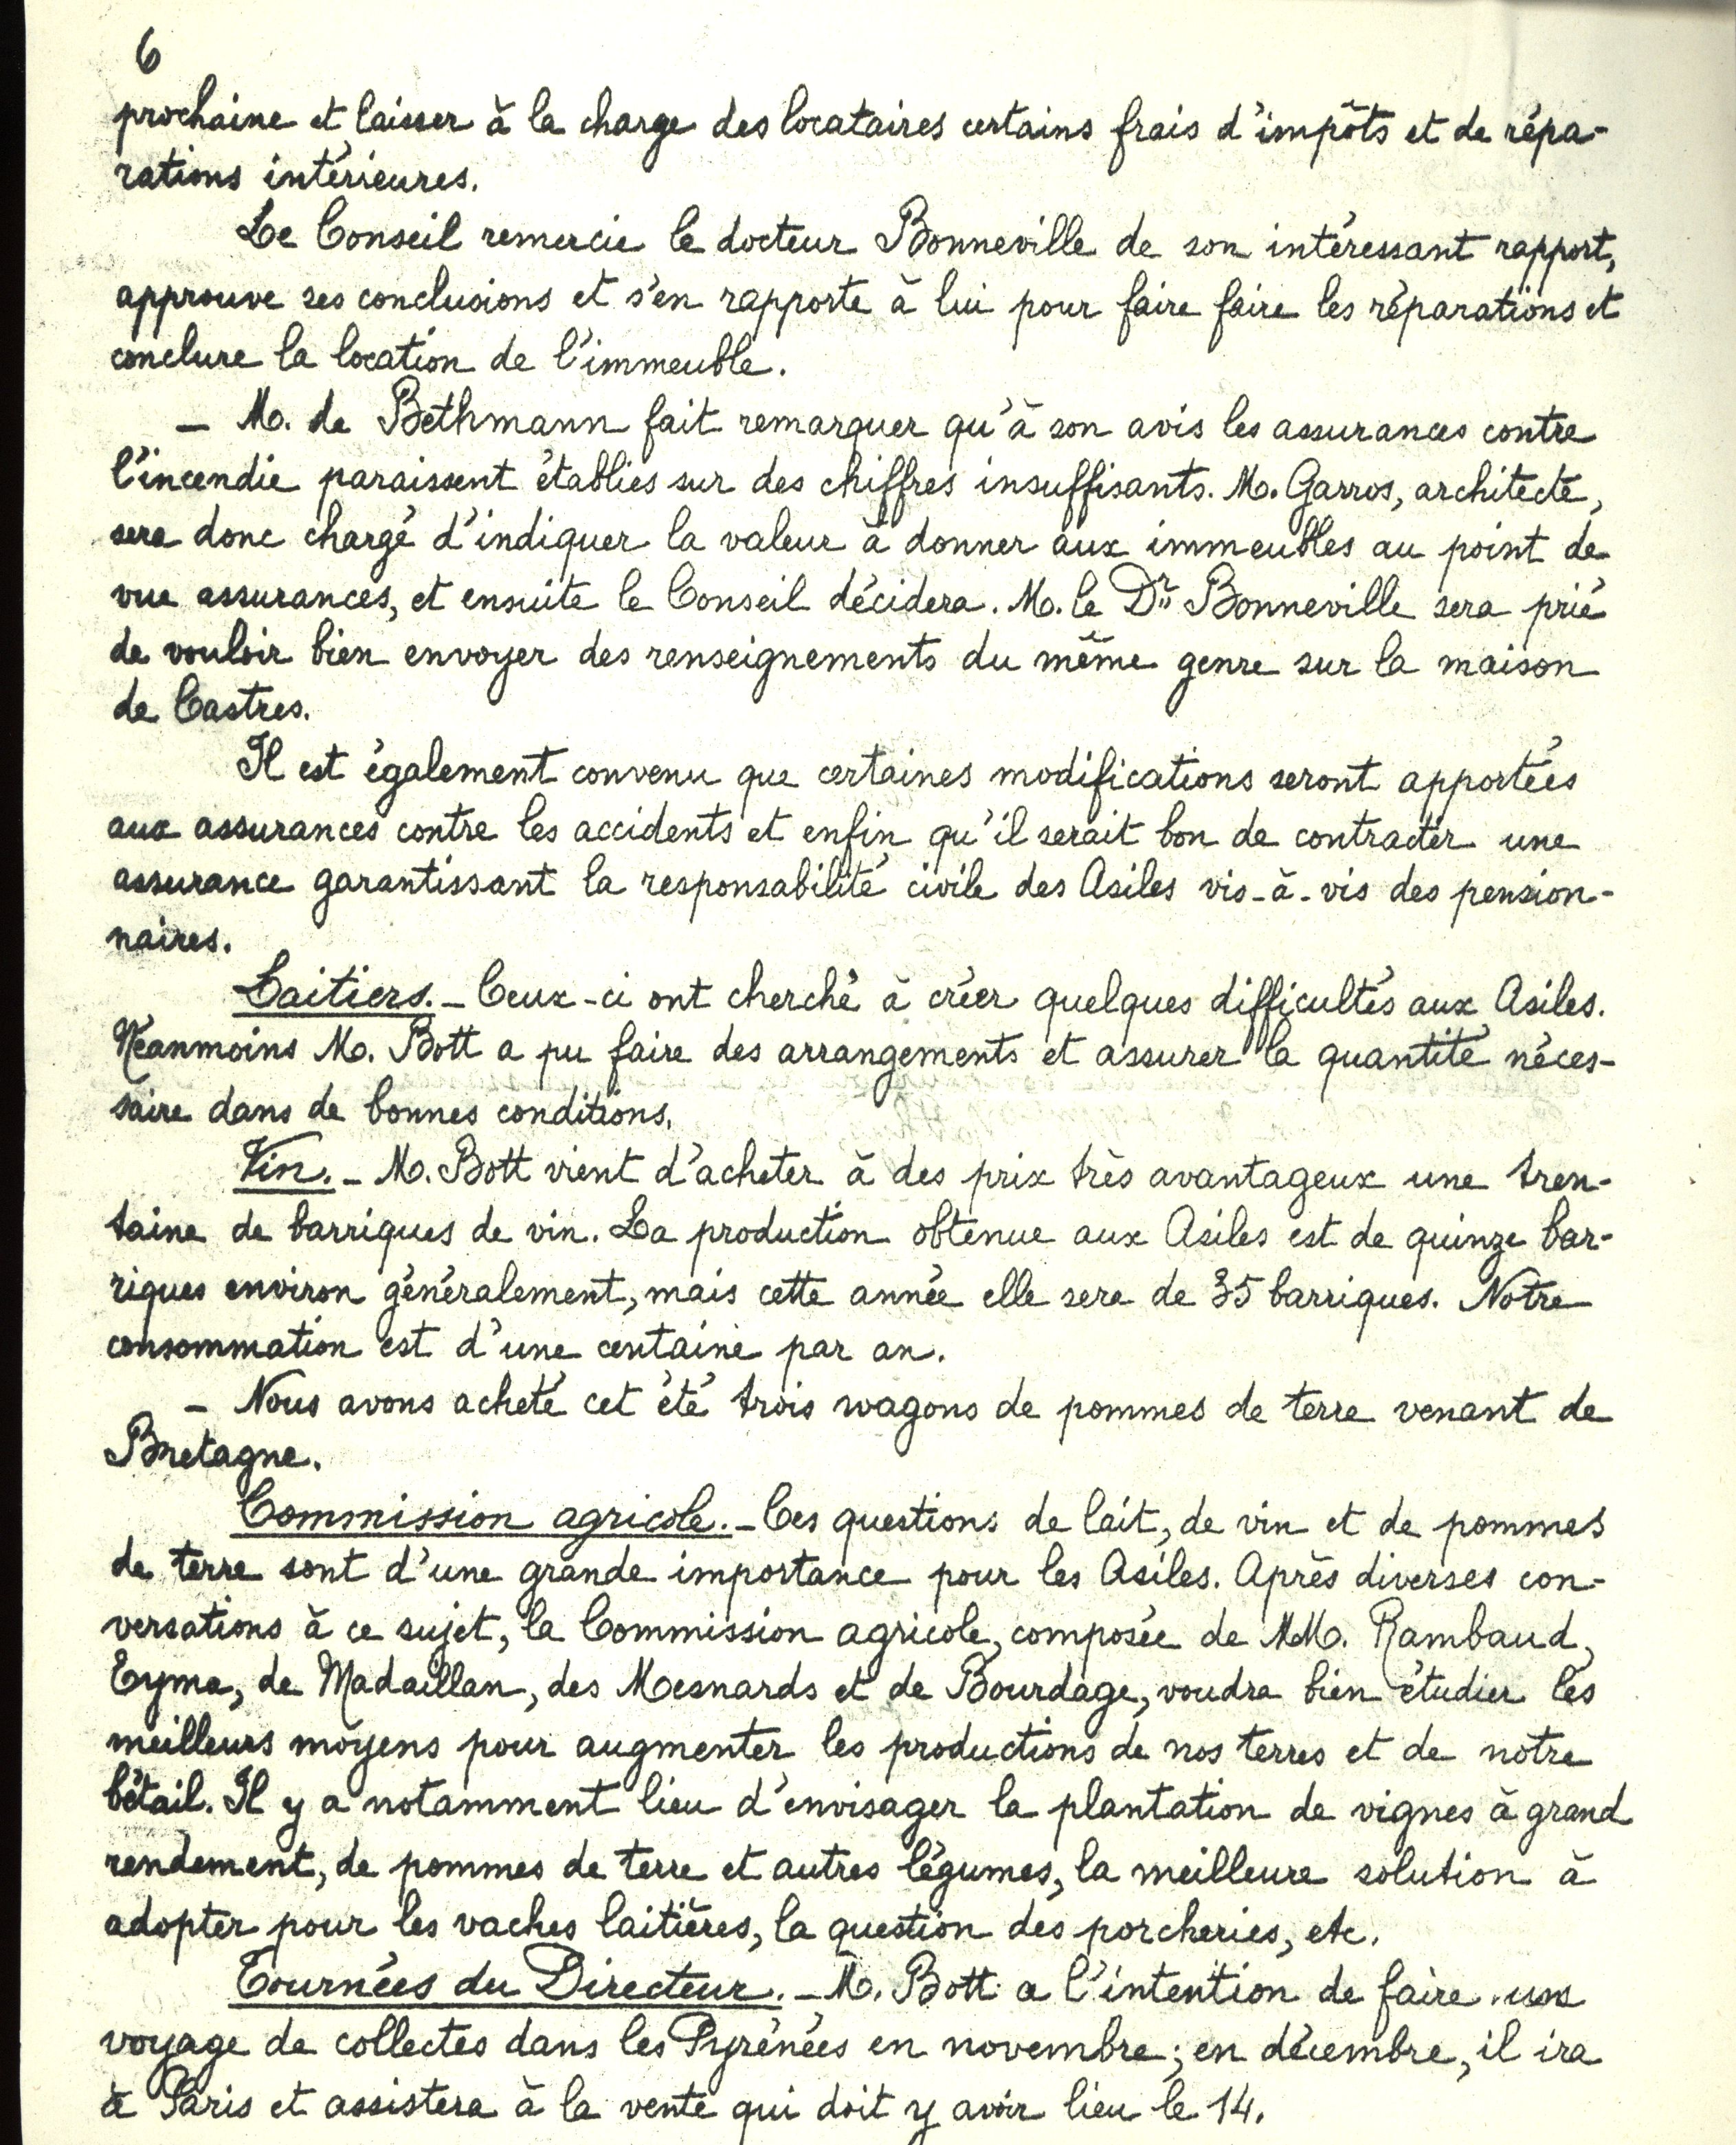 6
prochaine et laisser à la charge des locataires certains frais d'impôts et de répa-
rations intérieures.
Le Conseil remercie le docteur Bonneville de son intéressant rapport,
approuve ses conclusions et s'en rapporte à lui pour faire faire les réparations et
conclure la location de l'immeuble.
– M. de Bethmann fait remarquer qu'à son avis les assurances contre
l'incendie paraissent établies sur des chiffres insuffisants. M. Garros, architecte,
sera donc chargé d'indiquer la valeur à donner aux immeubles au point de
vue assurances, et ensuite le Conseil décidera. M. le Dr Bonneville sera prié
de vouloir bien envoyer des renseignements du même genre sur la maison
de Castres.
Il est également convenu que certaines modifications seront apportées
aux assurances contre les accidents et enfin qu'il serait bon de contracter une
assurance garantissant la responsabilité civile des Asiles vis-à-vis des pension-
naires.
Laitiers. – Ceux-ci ont cherché à créer quelques difficultés aux Asiles.
Néanmoins M. Bott a pu faire des arrangements et assurer la quantité néces-
saire dans de bonnes conditions.
Vin. – M. Bott vient d'acheter à des prix très avantageux une tren-
taine de barriques de vin. La production obtenue aux Asiles est de quinze bar-
riques environ généralement, mais cette année elle sera de 35 barriques. Notre
consommation est d'une centaine par an.
– Nous avons acheté cet été trois wagons de pommes de terre venant de
Bretagne.
Commission agricole. – Ces questions de lait, de vin et de pommes
de terre sont d'une grande importance pour les Asiles. Après diverses con-
versations à ce sujet, la Commission agricole, composée de MM. Rambaud,
Eyma, de Madaillan, des Mesnards et de Bourdage, voudra bien étudier les
meilleurs moyens pour augmenter les productions de nos terres et de notre
bétail. Il y a notamment lieu d'envisager la plantation de vignes à grand
rendement, de pommes de terre et autres légumes, la meilleure solution à
adopter pour les vaches laitières, la question des porcheries, etc.
Tournées du Directeur. – M. Bott a l'intention de faire un
voyage de collectes dans les Pyrénées en novembre ; en décembre, il ira
à Paris et assistera à la vente qui doit y avoir lieu le 14.